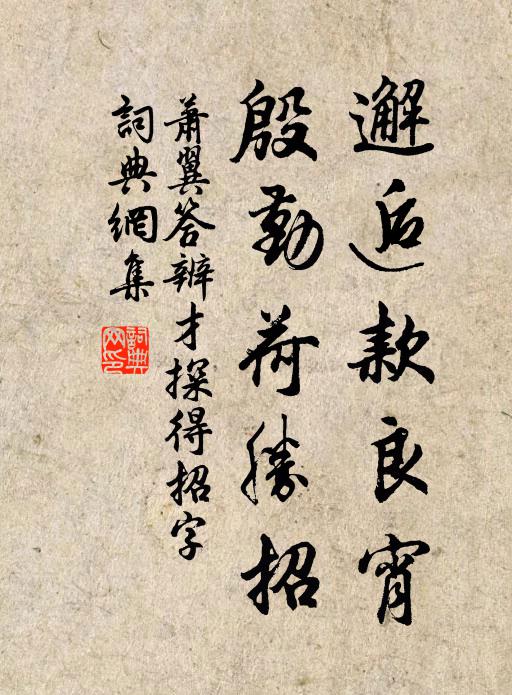 邂逅款良宵
殷勤荷勝招
蕭翼答辨才探得招字
詞典網集
詞典網印